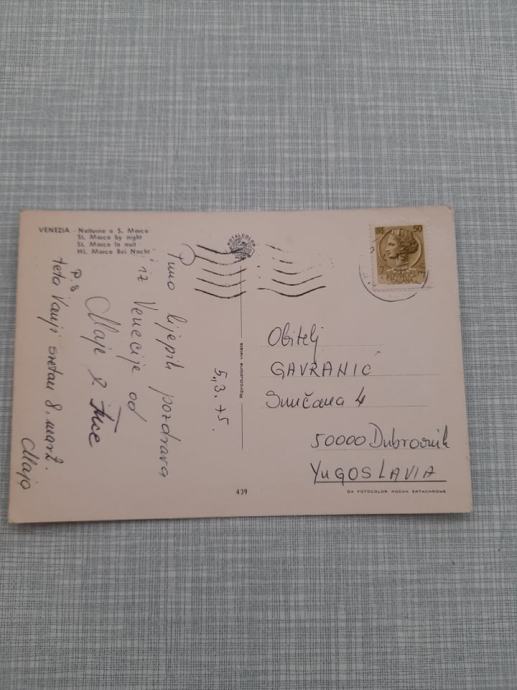 VENEZIA - Notturno a S. Marco
St. Marco by night
St. Marco la nuit
Hl. Marco Bei Nacht
Puno lijepih pozdrava
iz Venecije od
Maje &
P.S.
teto Vanji sretan 8. mart.
Maja
5.3.75.
Obitelj
GAVRANIĆ
Sunčana 4
50000 Dubrovnik
YUGOSLAVIA
439
DA FOTOCOLOR KODAK EKTACHROME
50